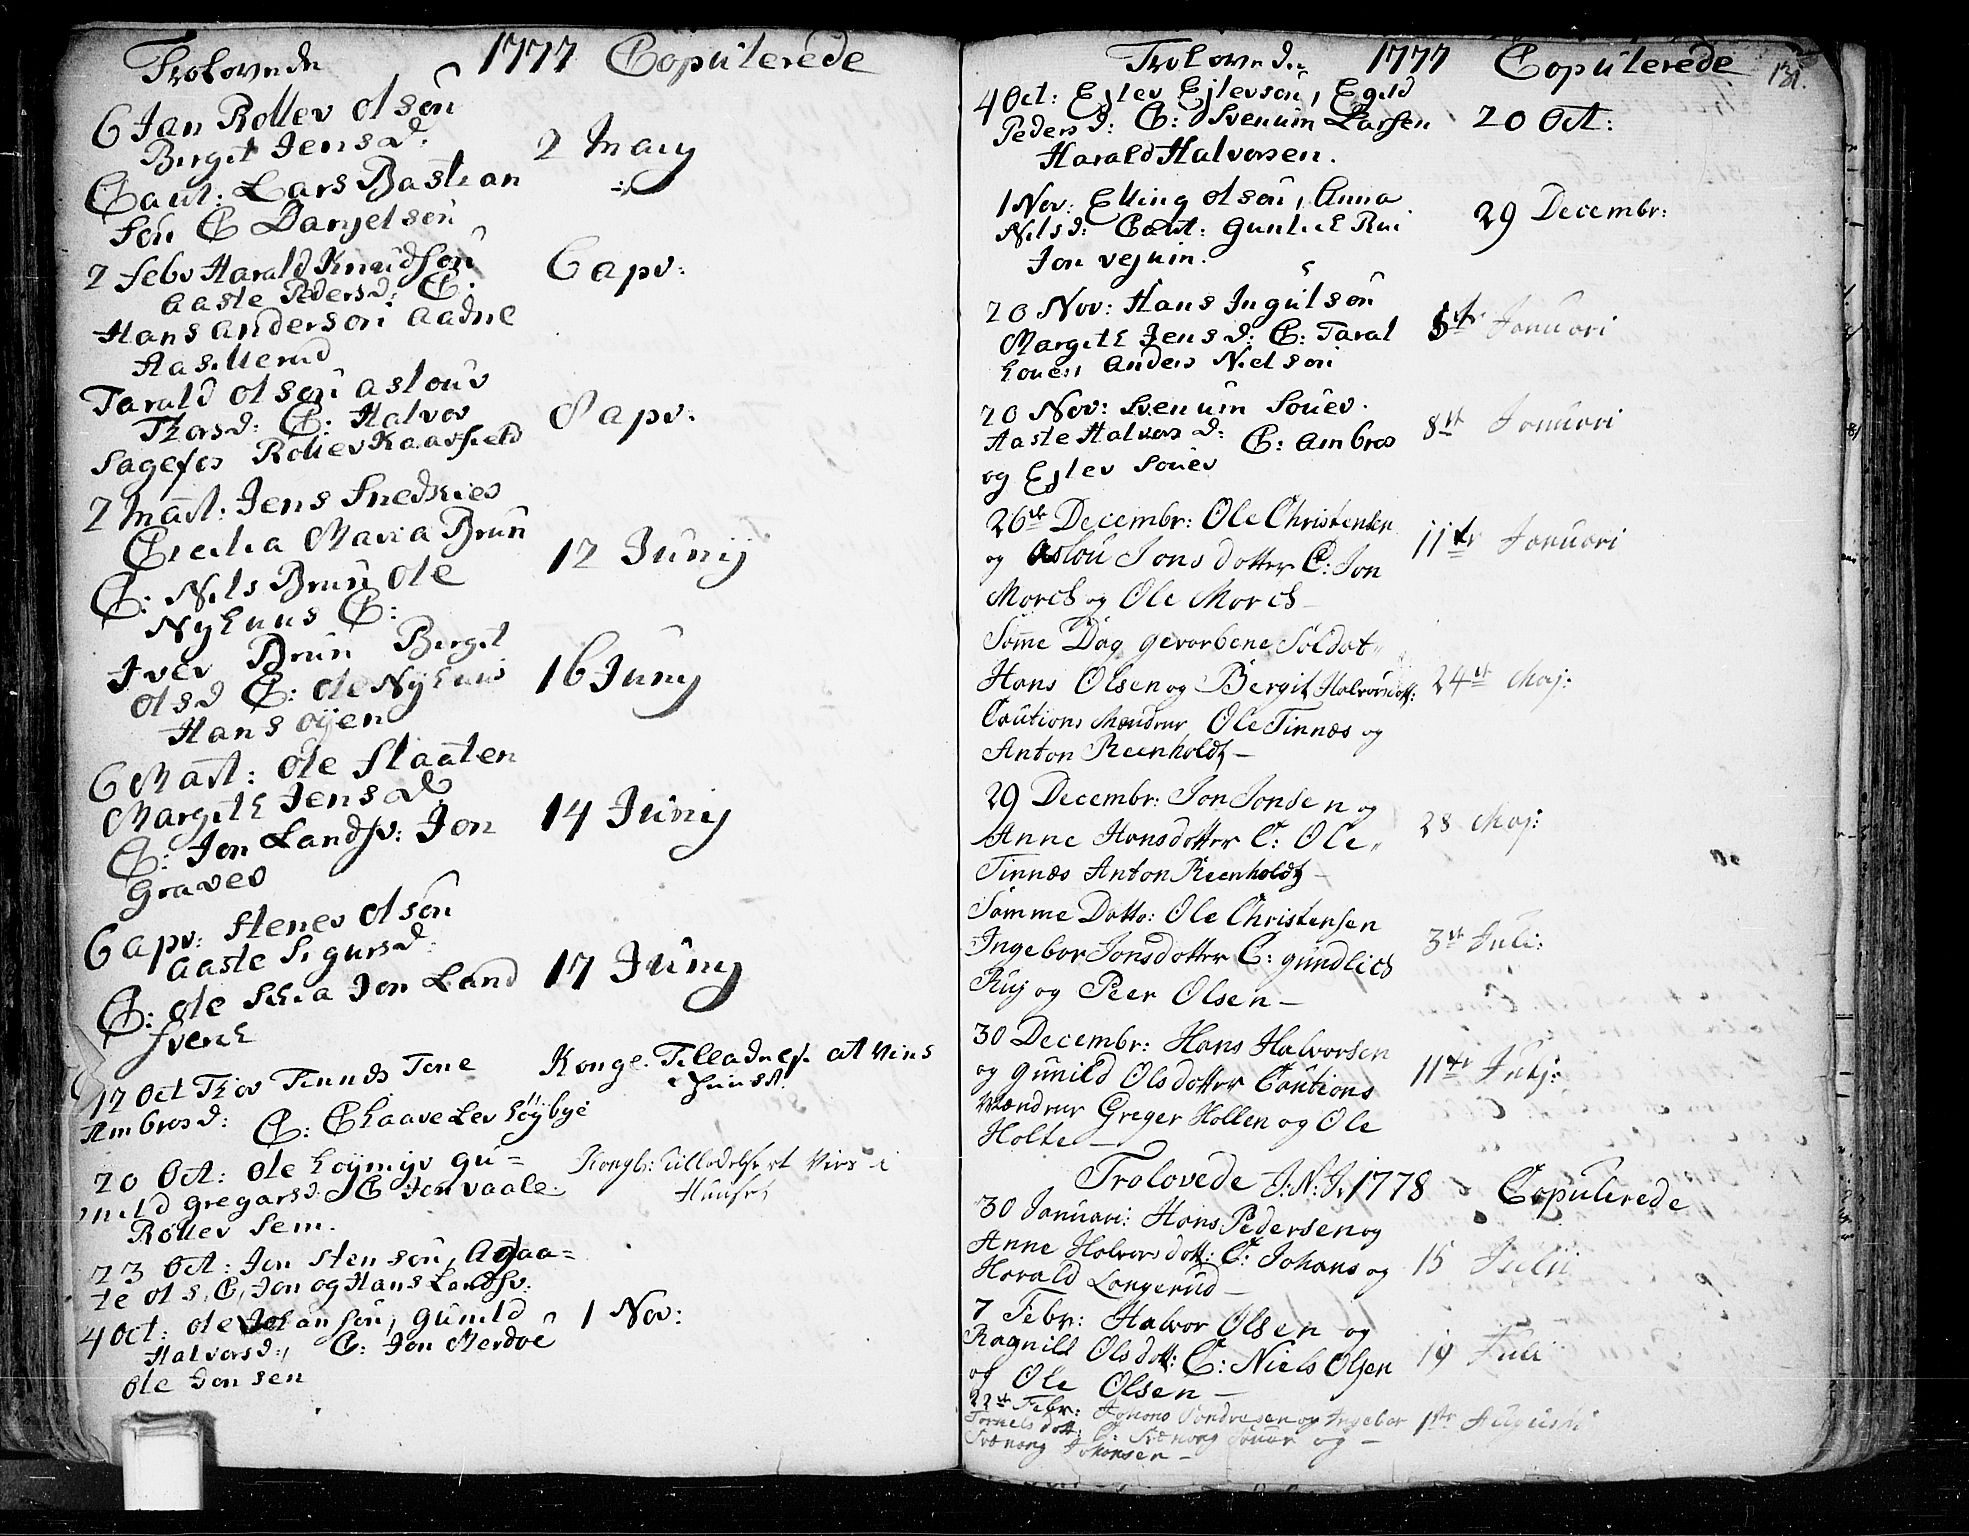 Trolovede 1777 Copulerede
6 Jan Rollev Olson
Berget Jensd.
Caut: Lars Bastian
Son C Danjelson
2 Maij
2 febr Harald Knudson
Aaste Pedersd: C.
Hans Anderson Aadne
Hasellerud
6 apr:
Tarald Olson aslouv
Thorsd: C: Halvor
Sagefos Rollev Kaasfield
8 apr.
2 Mart: Jens Snedkies
Cecilia Maria Brun
C: Nils Brun Ole
Nyhuus C:
12 Junij
Iver Brun Berget
Olsd C: Ole Nyhuus
Hans oÿen
16 Junij
6 Mart: Ole Staaten
Margith Jensd
C: Jon Landsv: Jon
Graver
14 Junij
6 apr: Stener Olson
Aaste Sigursd:
C: Ole Skia Jon Land
sverk
17 Junij
12 Oct Thor Tinnes Tone
Ambrosd: C: Chaave Lev høÿbÿe
Kongl. Tilladelse at vies
i Huuset
20 Oct: Ole høymyr Gu=
nild Gregarsd: C Jon vaale
Rollev Sem.
Kongl: Tilladelse at Vies i
Huuset
23 Oct: Jon Stenson, Agaa=
te Ols, C, Jon og Hans Landsv:
4 Oct: Ole Johanson, Gunild
Halvorsd:, C: Jon Merdøe
Ole Honsen
1 Nov:
Trolovede 1777 Copulerede 131.
4 Oct: Ejlev Ejlevson, Egeld
Pedersd: C: Svenum Larsen
Harald Halvorsen.
20 Oct:
1 Nov: Elling Olson, Anna
Nilsd: Caut: Gunlech Rui
Jon vejum.
29 Decembr:
20 Nov: Hans Ingulson
Margith Jensd: C: Taral
houen Anders Nielson
5te Januari
20 Nov: Svenum Souer.
Aaste Halvorsd: C: Ambros
og Ejlev Souer
8de Januari
26de Decembr: Ole Christensen
og Aslou Jonsdotter C: Jon
Morch og Ole Morch
11te Januari
Samme Dag gevorbene Soldat
Hans Olsen og Bergit Halvorsdott:
Cautions Mændene Ole Tinnæs og
Anton Reenholdt
24de Maj:
29 Decembr: Jon Jonsen og
Anne Hansdotter C: Ole
Tinnæs Anton Reenholdt
28 Maj:
Samme Datto: Ole Christensen
Ingebor Jonsdotter C: gundlich
Ruj og Peer Olsen
3de Juli:
30 Decembr: Hans Halvorsen
og gunild Olsdotter Cautions
Mændene Greger Hollen og Ole
Holte
11te Julj:
Trolovede J:N:J: 1778 Copulerede
30 Januari: Hans Pedersen og
Anne Halvorsdott: C: Johans og
Harald Langerud
15 Julii
7 Febr: Halvor Olsen og
Ragnild Olsdott: C: Niels Olsen
og Ole Olsen
19 Juli
22de Febr: Johans Sondresen og Ingebor
Tornelsdott: C: Svenong Souer og
Svenong Johansen
1te Augusti